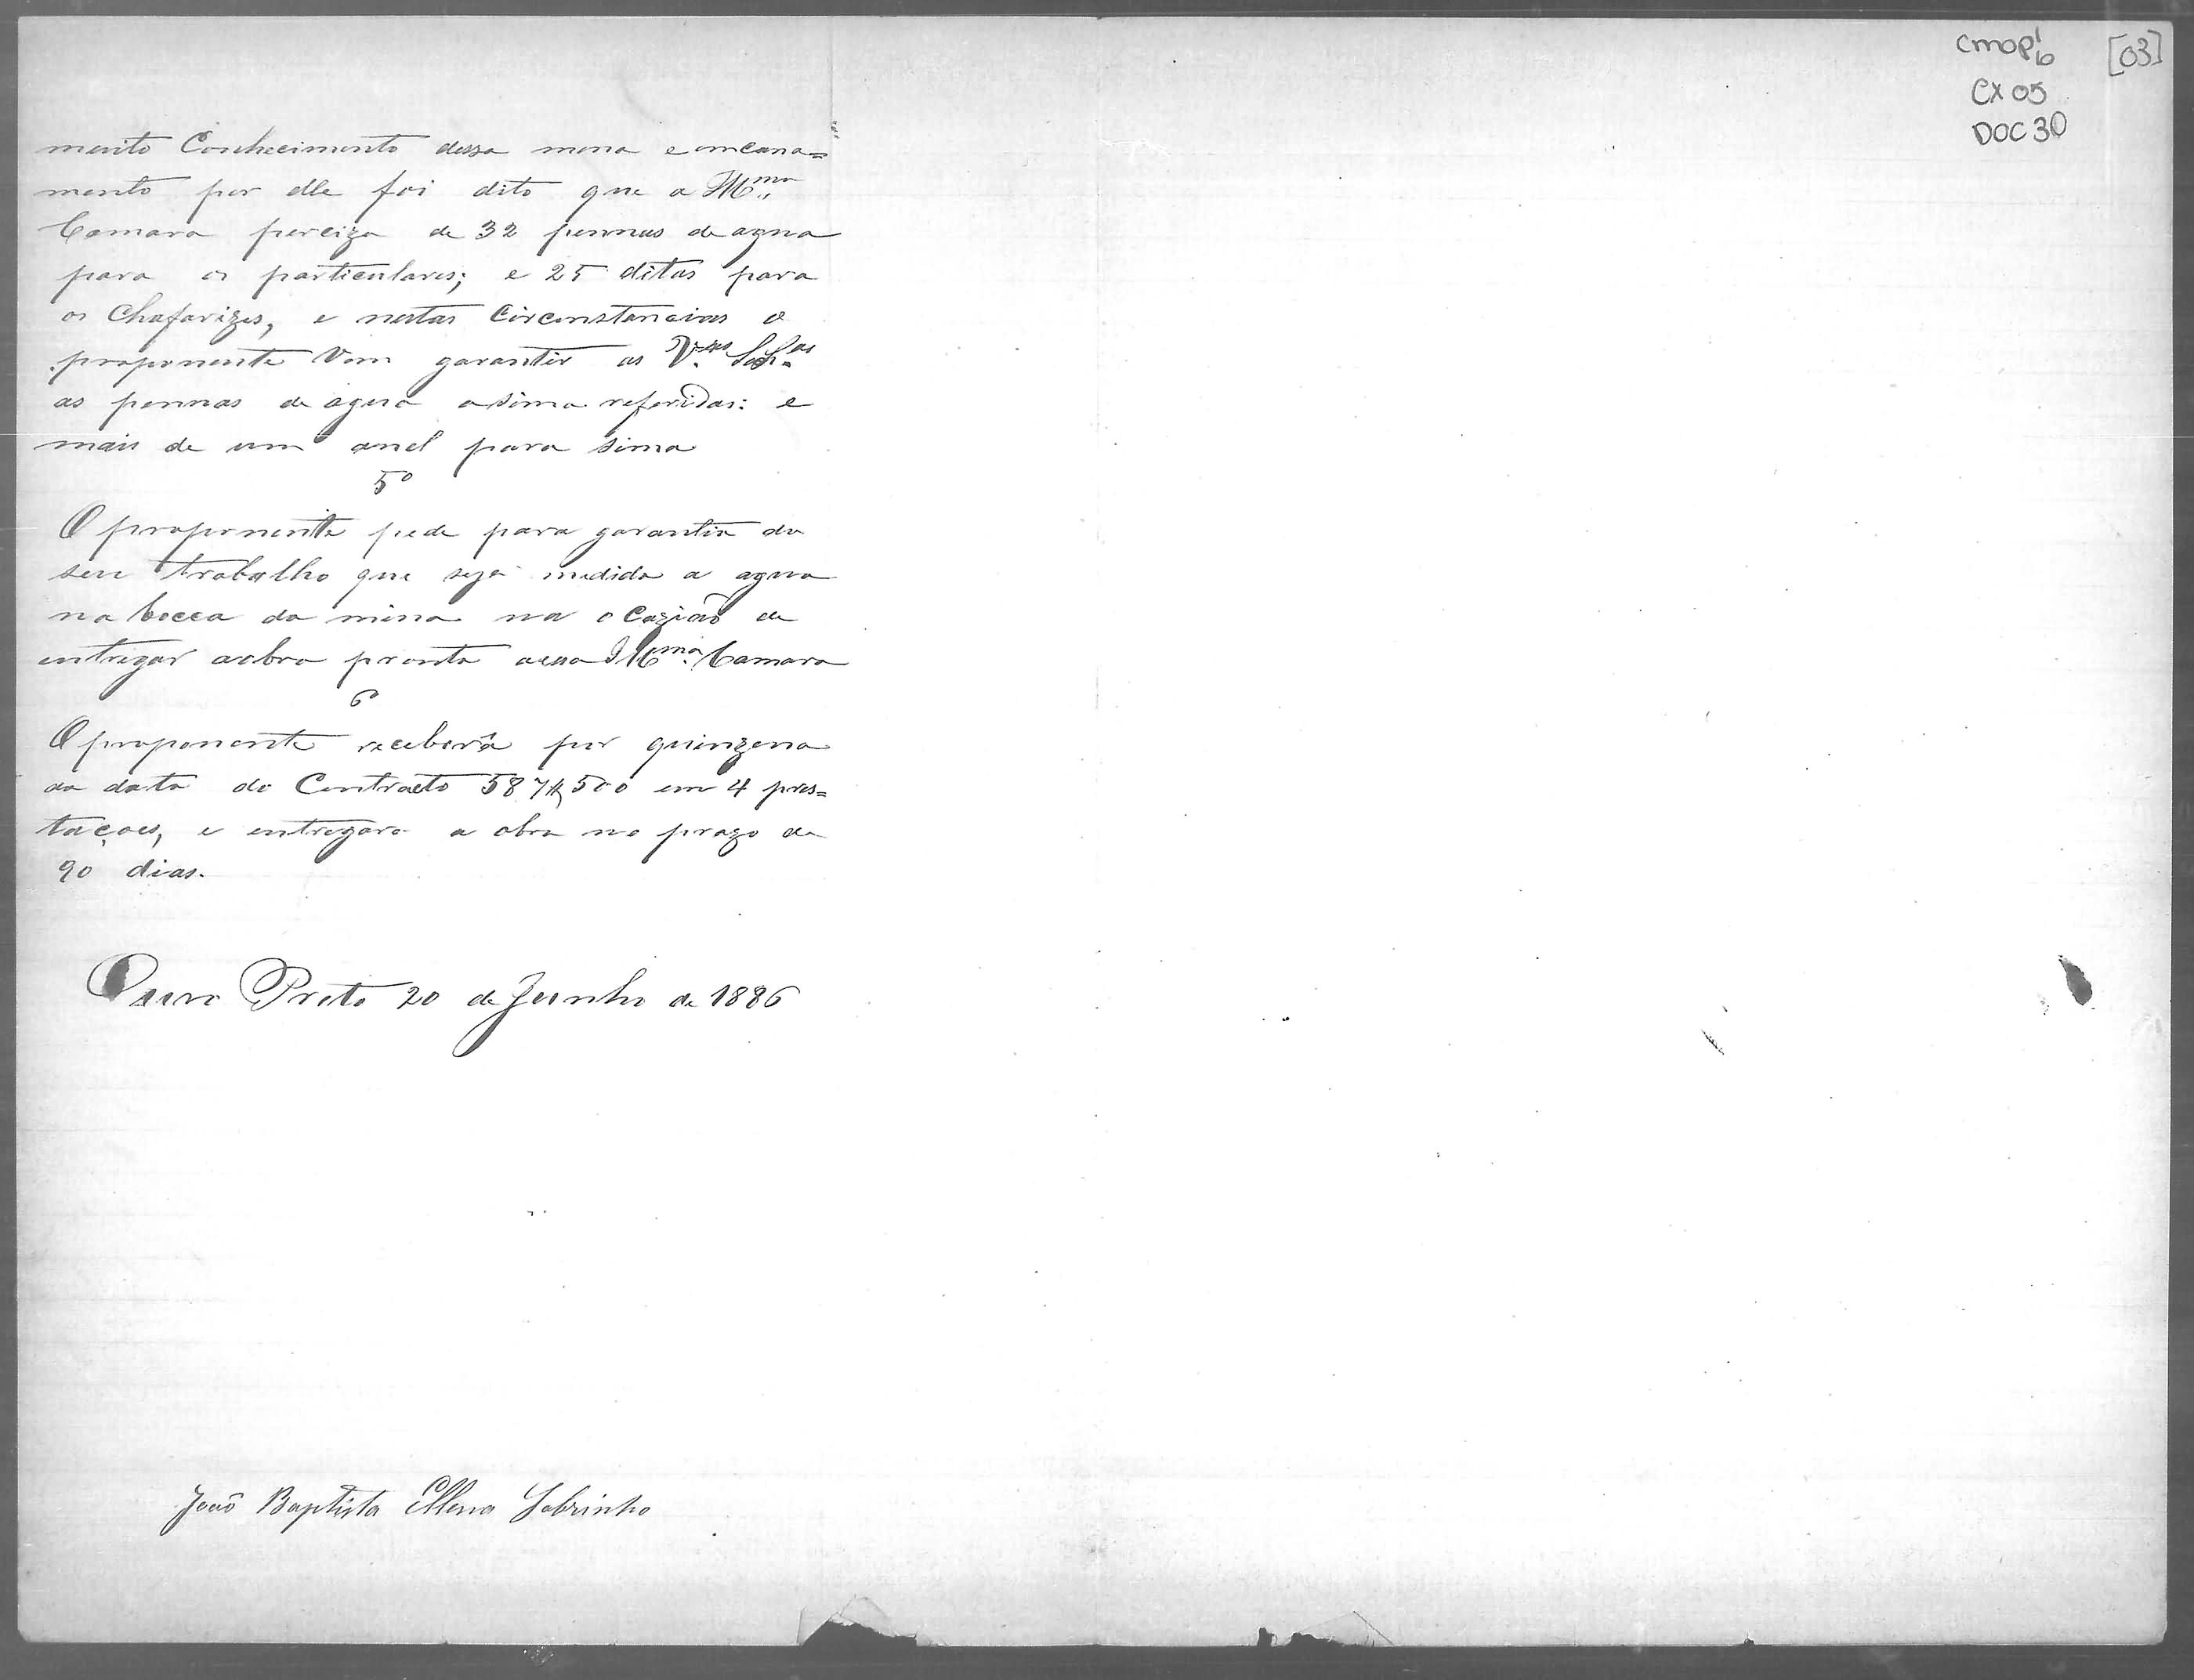 cmop 1/6
[03]
CX 05
DOC 30
muito Conhecimento dessa mina e emcana=
mento por elle foi dito que a Illma
Camara perciza de 32 pennas de agua
para os particulares; e 25 ditas para
os Chafarizes, e nestas Circonstancias o
proponente Vem garantir as V.as
as pennas de agua asima referidas: e
mais de um anel para sima
5º
O proponente pede para garantia do
seu trabalho que seja medida a agua
na bocca da mina na ocazião de
entregar aobra pronta aessa Illma. Camara
6º
O proponente receberá por quinzena
da data do Contracto 587$500 em 4 pres=
tações, e entregara a obra no prazo de
90 dias.
Ouro Preto 20 de Junho de 1886
João Baptista Ellena Sobrinho